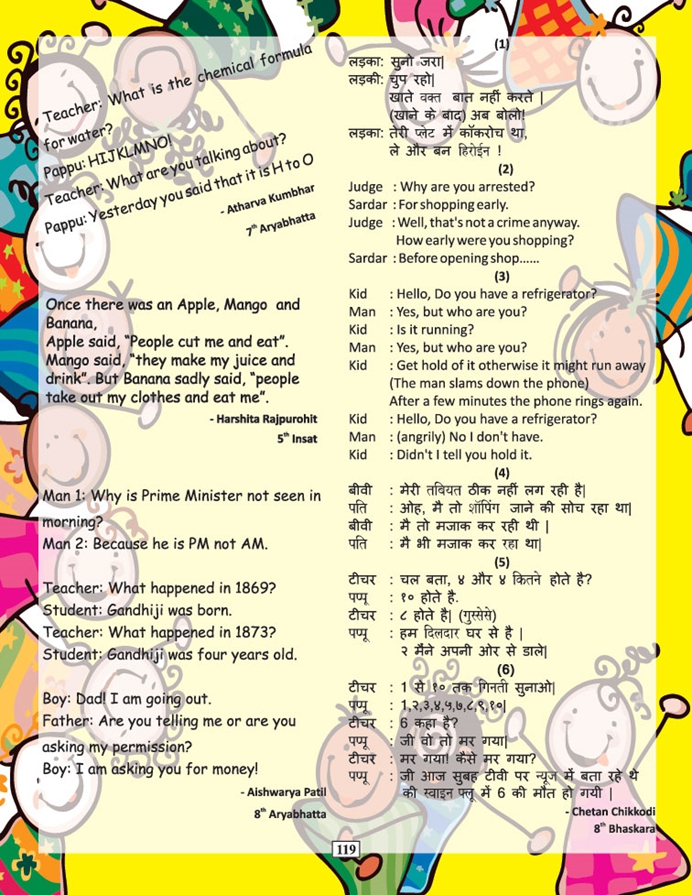 Teacher: What is the chemical formula
for water?
Pappu: HIJKLMNO!
Teacher: What are you talking about?
Pappu: Yesterday you said that it is H to O
- Atharva Kumbhar
7th Aryabhatta
Once there was an Apple, Mango and
Banana,
Apple said, “People cut me and eat”.
Mango said, “they make my juice and
drink”. But Banana sadly said, “people
take out my clothes and eat me”.
- Harshita Rajpurohit
5th Insat
Man 1: Why is Prime Minister not seen in
morning?
Man 2: Because he is PM not AM.
Teacher: What happened in 1869?
Student: Gandhiji was born.
Teacher: What happened in 1873?
Student: Gandhiji was four years old.
Boy: Dad! I am going out.
Father: Are you telling me or are you
asking my permission?
Boy: I am asking you for money!
- Aishwarya Patil
8th Aryabhatta
(1)
लड़का: सुनो जरा|
लड़की: चुप रहो|
खाते वक्त बात नहीं करते |
(खाने के बाद) अब बोलो!
लड़का: तेरी प्लेट में कॉकरोच था,
ले और बन हिरोईन !
(2)
Judge : Why are you arrested?
Sardar : For shopping early.
Judge : Well, that's not a crime anyway.
How early were you shopping?
Sardar : Before opening shop......
(3)
Kid : Hello, Do you have a refrigerator?
Man : Yes, but who are you?
Kid : Is it running?
Man : Yes, but who are you?
Kid : Get hold of it otherwise it might run away
(The man slams down the phone)
After a few minutes the phone rings again.
Kid : Hello, Do you have a refrigerator?
Man : (angrily) No I don't have.
Kid : Didn't I tell you hold it.
(4)
बीवी : मेरी तबियत ठीक नहीं लग रही है|
पति : ओह, मै तो शॉपिंग जाने की सोच रहा था|
बीवी : मै तो मजाक कर रही थी |
पति : मै भी मजाक कर रहा था|
(5)
टीचर : चल बता, ४ और ४ कितने होते है?
पप्पू : १० होते है.
टीचर : ८ होते है| (गुस्सेसे)
पप्पू : हम दिलदार घर से है |
२ मैने अपनी ओर से डाले|
(6)
टीचर : 1 से १० तक गिनती सुनाओ|
पप्पू : 1,२,३,४,५,७,८,९,१०|
टीचर : 6 कहा है?
पप्पू : जी वो तो मर गया|
टीचर : मर गया! कैसे मर गया?
पप्पू : जी आज सुबह टीवी पर न्यूज में बता रहे थे
की स्वाइन फ्लू में 6 की मौत हो गयी |
- Chetan Chikkodi
8th Bhaskara
119